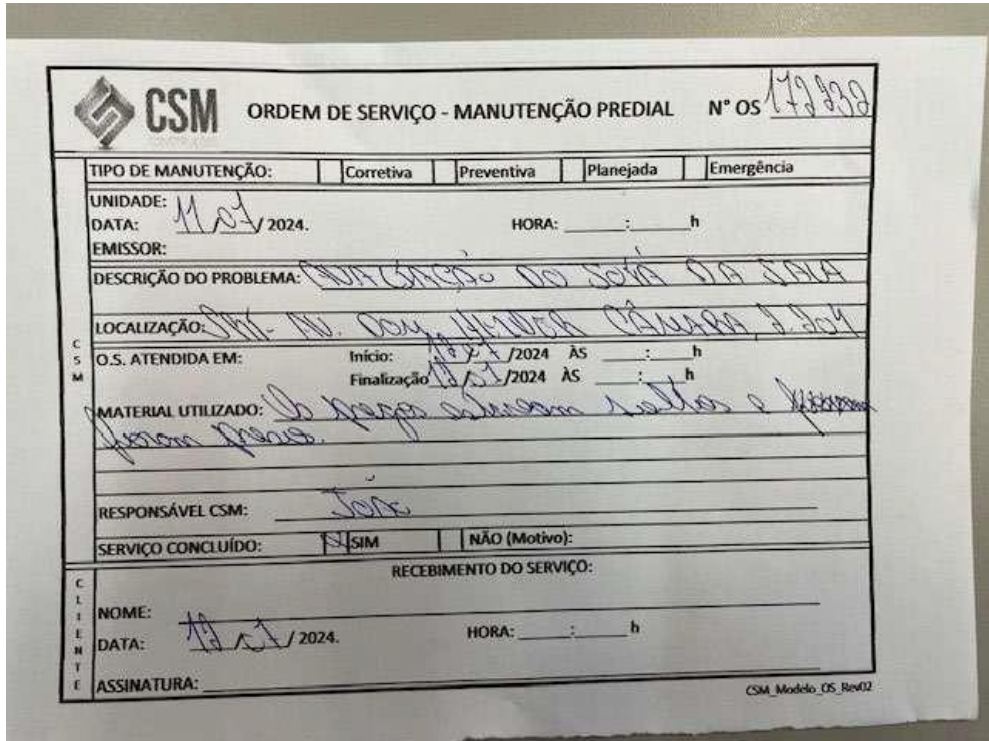 CSM ORDEM DE SERVIÇO - MANUTENÇÃO PREDIAL N° OS 172232
TIPO DE MANUTENÇÃO: Corretiva Preventiva Planejada Emergência
UNIDADE:
DATA: 11/07/2024. HORA: ____:____h
EMISSOR:
DESCRIÇÃO DO PROBLEMA: AVALIAÇÃO DO SOFÁ DA SALA
LOCALIZAÇÃO: AV. DOM HELDER CÂMARA,
O.S. ATENDIDA EM: Início: 12/7/2024 ÀS ____:____h
Finalização 12/07/2024 ÀS ____:____h
MATERIAL UTILIZADO: As peças estavam soltas e
foram presas.
RESPONSÁVEL CSM: João
SERVIÇO CONCLUÍDO: SIM NÃO (Motivo):
RECEBIMENTO DO SERVIÇO:
NOME:
DATA: 12/07/2024. HORA: ____:____h
ASSINATURA:
CSM_Modelo_OS_Rev02
CSM
CLIENTE